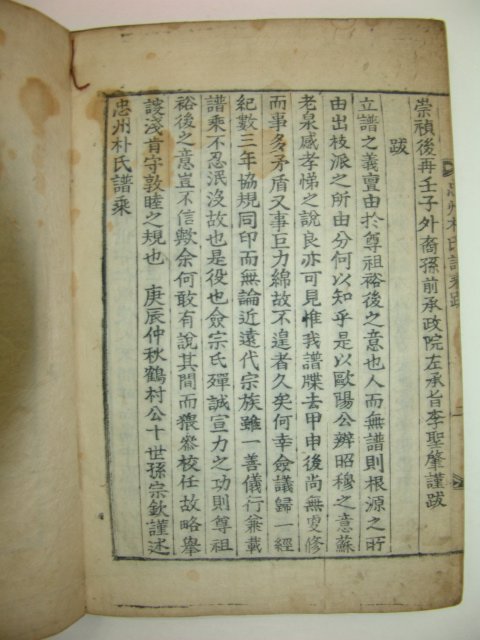 崇禎後再壬子外裔孫前承政院左承旨李聖肇謹跋
跋
立譜之義亶由於尊祖裕後之意也人而無譜則根源之所
由出枝派之所由分何以知乎是以歐陽公辨昭穆之意蘇
老泉感孝悌之說良亦可見惟我譜牒去甲申後尚無更修
而事多矛盾又事巨力綿故不遑者久矣何幸僉議歸一經
紀數三年協規同印而無論近遠代宗族雖一善儀行兼載
譜乘不忍泯沒故也是役也僉宗氏殫誠宣力之功則尊祖
裕後之意豈不信歟余何敢有說其間而猥參校任故略舉
諼淺肯守敦睦之規也　庚辰仲秋鶴村公十世孫宗欽謹述
忠州朴氏譜乘